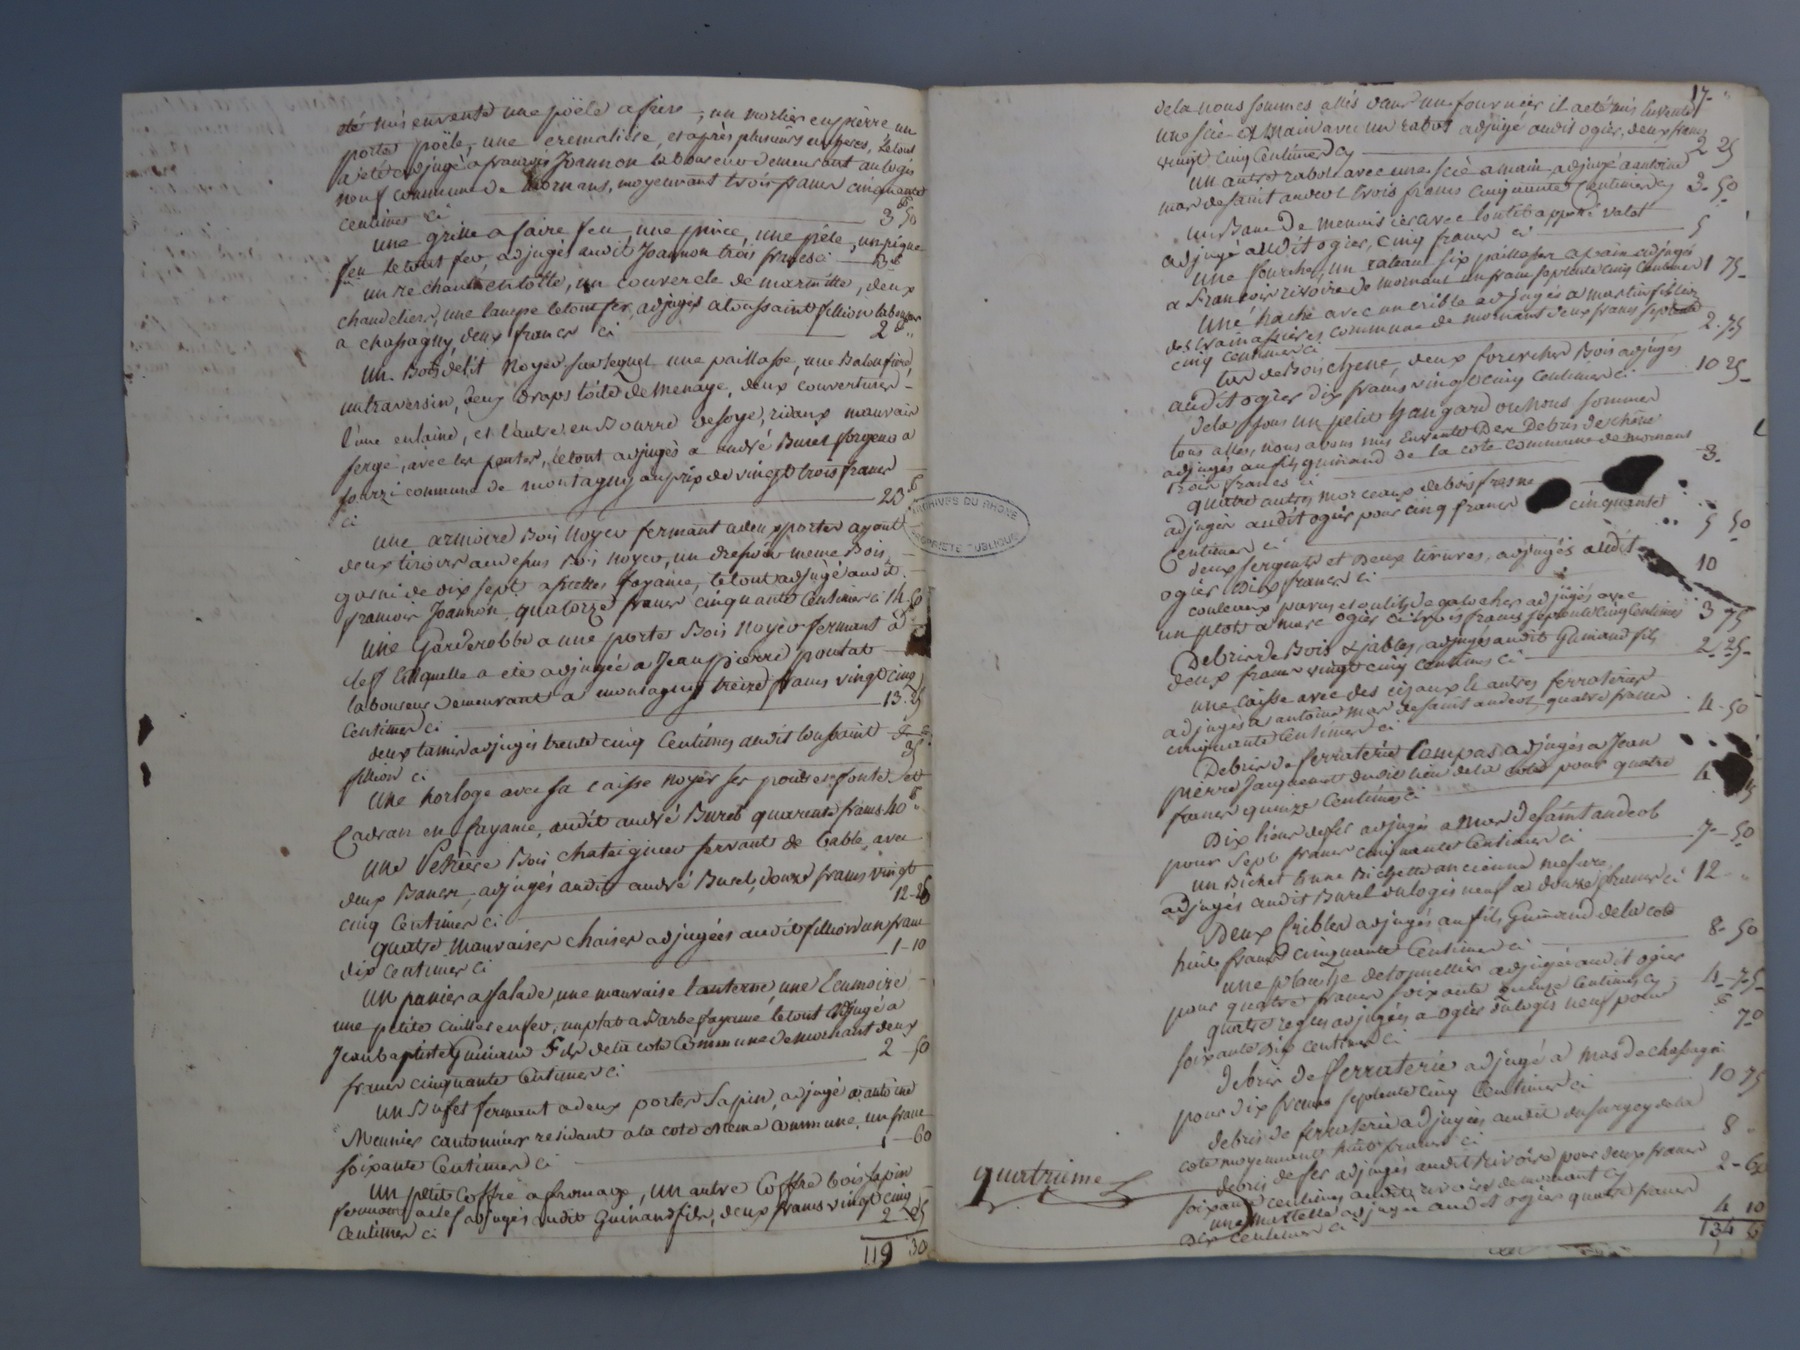 été mis en vente une poële a frire, un mortier en pierre un
porte poële, une cremaliére, et après plusieurs encheres, le tout
a été adjugé a françois Joannon laboureur demeurant au logis
neuf commune de mornans, moyennant trois francs cinquante
centimes ci 3f 50
une grille a faire feu, une pince, une pèle, un pique
feu le tout fer, adjugés audit Joannon trois francs ci 3f
un rechaud en totte, un couvercle de marmitte, deux
chandeliers, une lampe le tout fer, adjugés a toussaint fillion laboureur
a chassagny, deux francs ci 2f "
un Bois de lit noyer sur lequel une paillasse, une Baloufiere,
un traversin, deux draps toile de menage, deux couvertures
l'une en laine, et l'autre en Bourre de soye, ridaux mauvais
serge, avec les pentes, le tout adjugés a andré Burel forgeur a
fourzi commune de montagny au prix de vingt trois francs
ci 23f
une armoire Bois noyer fermant a deux portes ayant
deux tiroirs au dessus Bois noyer, un dressoir meme Bois
garni de dix sept assiettes fayance, le tout adjugé audit
francois Joannon, quatorze francs cinquante centimes ci 14-50
une Garderobbe a une portes Bois noyer fermant a
cleff laquelle a été adjugée a Jean pierre poutat
laboureur demeurant a montagny treize francs vingt cinq
centimes ci 13-25
deux tamis adjugés trente cinq centimes audit toussaint
fillion ci 35
une horloge avec sa caisse noyer ses poids en fonte et
Cadran en fayance, audit andré Burel quarante francs 40f
une Petriere Bois chataignier servant de table avec
deux Bancs, adjugés audit andré Burel, douze francs vingt
cinq centimes ci 12-25
quatre mauvaises chaises adjugées audit fillion un franc
dix centimes ci 1-10
un panier a salade, une mauvaise lanterne une Ecumoire
une petite cuiller en fer, un plat a Barbe fayance le tout adjugé a
Jean baptiste Guinand fils de la cote commune de mornant deux
francs cinquante centimes ci 2-50
un Bufet fermant a deux portes sapin, adjugé a antoine
Meunier cantonnier residant a la cote meme commune, un franc
soixante centimes ci 1-60
un petit coffre a fromage, un autre coffre bois sapin
fermant a clef adjugés audit Guinand fils, deux francs vingt cinq
centimes ci 2-25
119 30
ARCHIVES DU RHONE
PROPRIETE PUBLIQUE
17-
de la nous sommes allés dans un fournier il a été mis en vente
une scie a main avec un rabot adjugé audit ogier, deux francs
vingt cinq centimes cy 2 25
un autre rabot avec une scie a main adjugé a antoine
mas de saint andeol trois francs cinquante centimes ci 3-50
un Banc de menuisier avec l'outil appellé valet
adjugé audit ogier, cinq francs ci 5
une fourche, un rateau six paillasses a pain adjugés
a francois rivoire de mornant un franc soptente cinq centimes 1 75-
une hache avec un crible adjugés a martin fillion
des trainassieres commune de mornans deux francs septente
cinq centimes ci 2-75
tas de Bois chene, deux fourches Bois adjugés
audit ogier dix francs vingt cinq centimes ci 10 25-
de la sous un petit hangard ou nous sommes
tous allés, nous avons mis en vente Des Debris de chêne
adjugés au fils guinand de la cote commune de mornans
trois francs ci 3-
quatre autres morceaux de bois fresne
adjugés audit ogier pour cinq francs cinquante
centimes ci 5 50
deux sergents et deux tirures, adjugés audit
ogier Dix francs ci 10
couteaux parus et outils de galoches adjugés avec
un plot a marc ogier ci trois francs septente cinq centimes 3 75
Debris de Bois & jables, adjugés audit Guinand fils
deux francs vingt cinq centimes ci 2-25-
une caisse avec des cizaux & autres ferrateries
adjugés a antoine mas de saint andeol, quatre francs
cinquante centimes ci 4-50
Debris de ferraterie Compas adjugés a Jean
pierre Jacquemet dudit lieu de la cote pour quatre
francs quinze centimes ci 4 15
Dix liens de fer adjugés a Mas de saint andeol
pour sept francs cinquante centimes ci 7-50
un Bichet & une Bichette ancienne mesure
adjugés audit Burel du logis neuf a douze francs ci 12- "
Deux Cribles adjugés au fils Guinand de la cote
huit francs cinquante centimes ci 8-50
une planche de tonnellier adjugée audit ogier
pour quatre francs soixante quinze centimes cy 4-75-
quatre regles adjugés a ogier du logis neuf pour
soixante dix centimes ci 70
debris de ferraterie adjugé a mas de chassagni
pour dix francs septente cinq centimes ci 10 75
debris de ferraterie adjugés audit de la
cote moyennant huit francs ci 8
debris de fer adjugés audit Rivoire pour deux francs
soixante centimes audit rivoire de mornant cy 2-60
une adjugée audit ogier quatre francs
Dix centimes ci 4 10
quatrieme
134